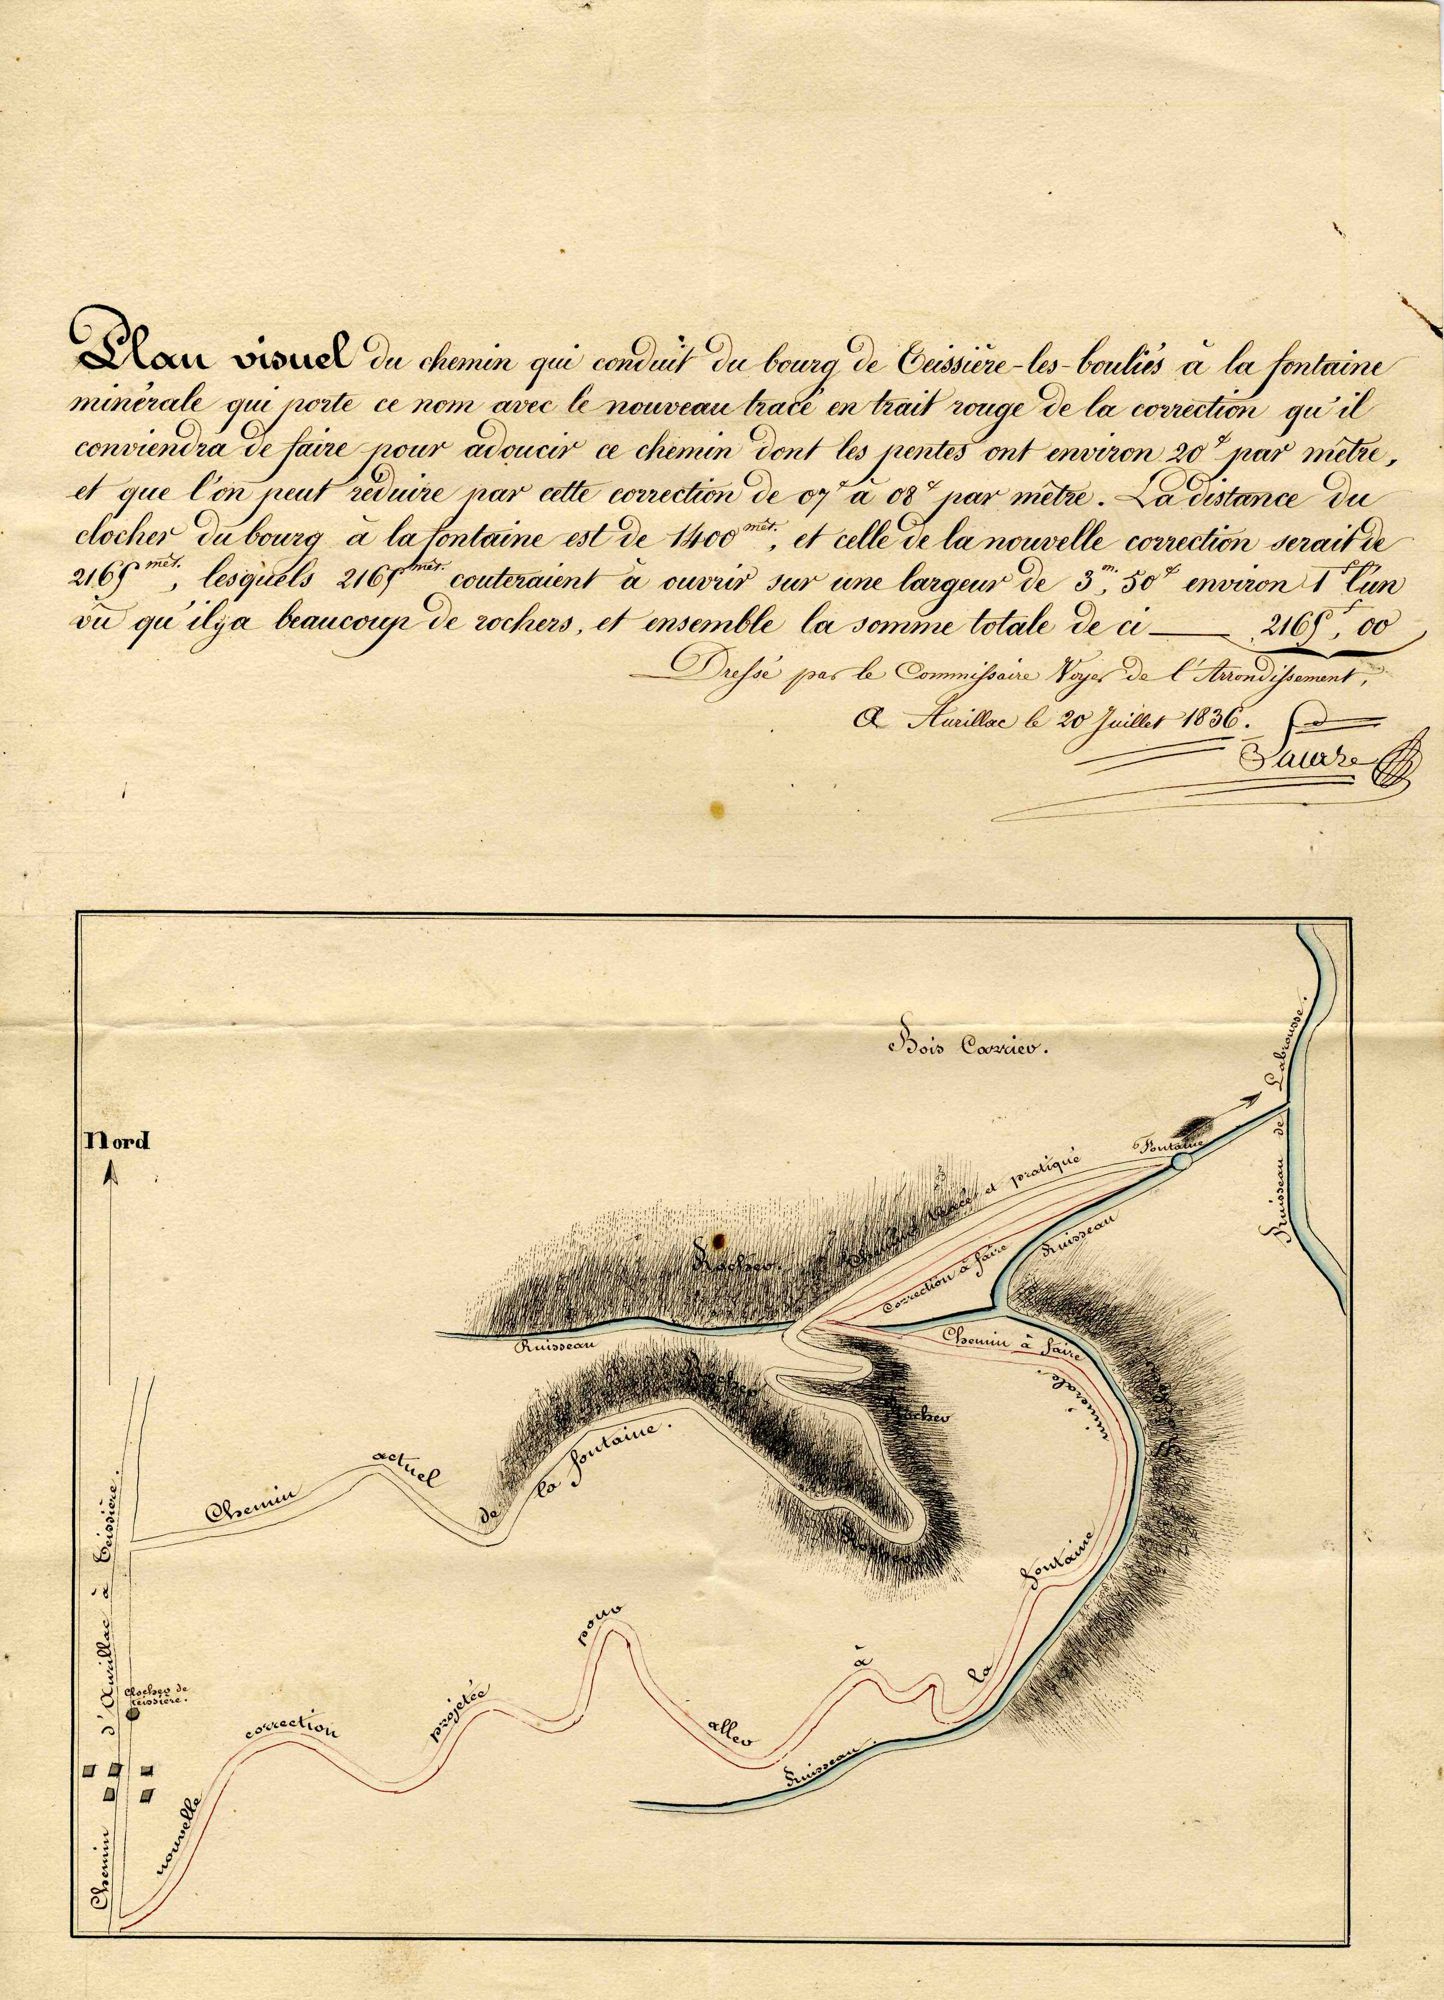 Plan visuel du chemin qui conduit du bourg de Teissière-les-bouliés à la fontaine
minérale qui porte ce nom avec le nouveau tracé en trait rouge de la correction qu'il
conviendra de faire pour adoucir ce chemin dont les pentes ont environ 20ᶜ par mêtre,
et que l'on peut réduire par cette correction de 07ᶜ à 08ᶜ par mêtre. La distance du
clocher du bourg à la fontaine est de 1400 mèt., et celle de la nouvelle correction serait de
2165 mèt., lesquels 2165 mèt. couteraient à ouvrir sur une largeur de 3m, 50ᶜ environ 1f l'un
vû qu'il y a beaucoup de rochers, et ensemble la somme totale de ci — 2165f, 00
Dressé par le Commissaire Voyer de l'Arrondissement,
A Aurillac le 20 Juillet 1836.
Bois Carrier.
Labrousse.
Ruisseau de
Nord
Fontaine
Chemin tracé et pratiqué
Rocher.
Correction à faire
Ruisseau
Ruisseau
Chemin à faire
Rocher
Rocher
Rocher
Rocher
Chemin actuel de la fontaine.
Chemin d'Aurillac à Teissière.
Clocher de
Teissière.
nouvelle correction projetée pour aller à la fontaine minérale.
Ruisseau.